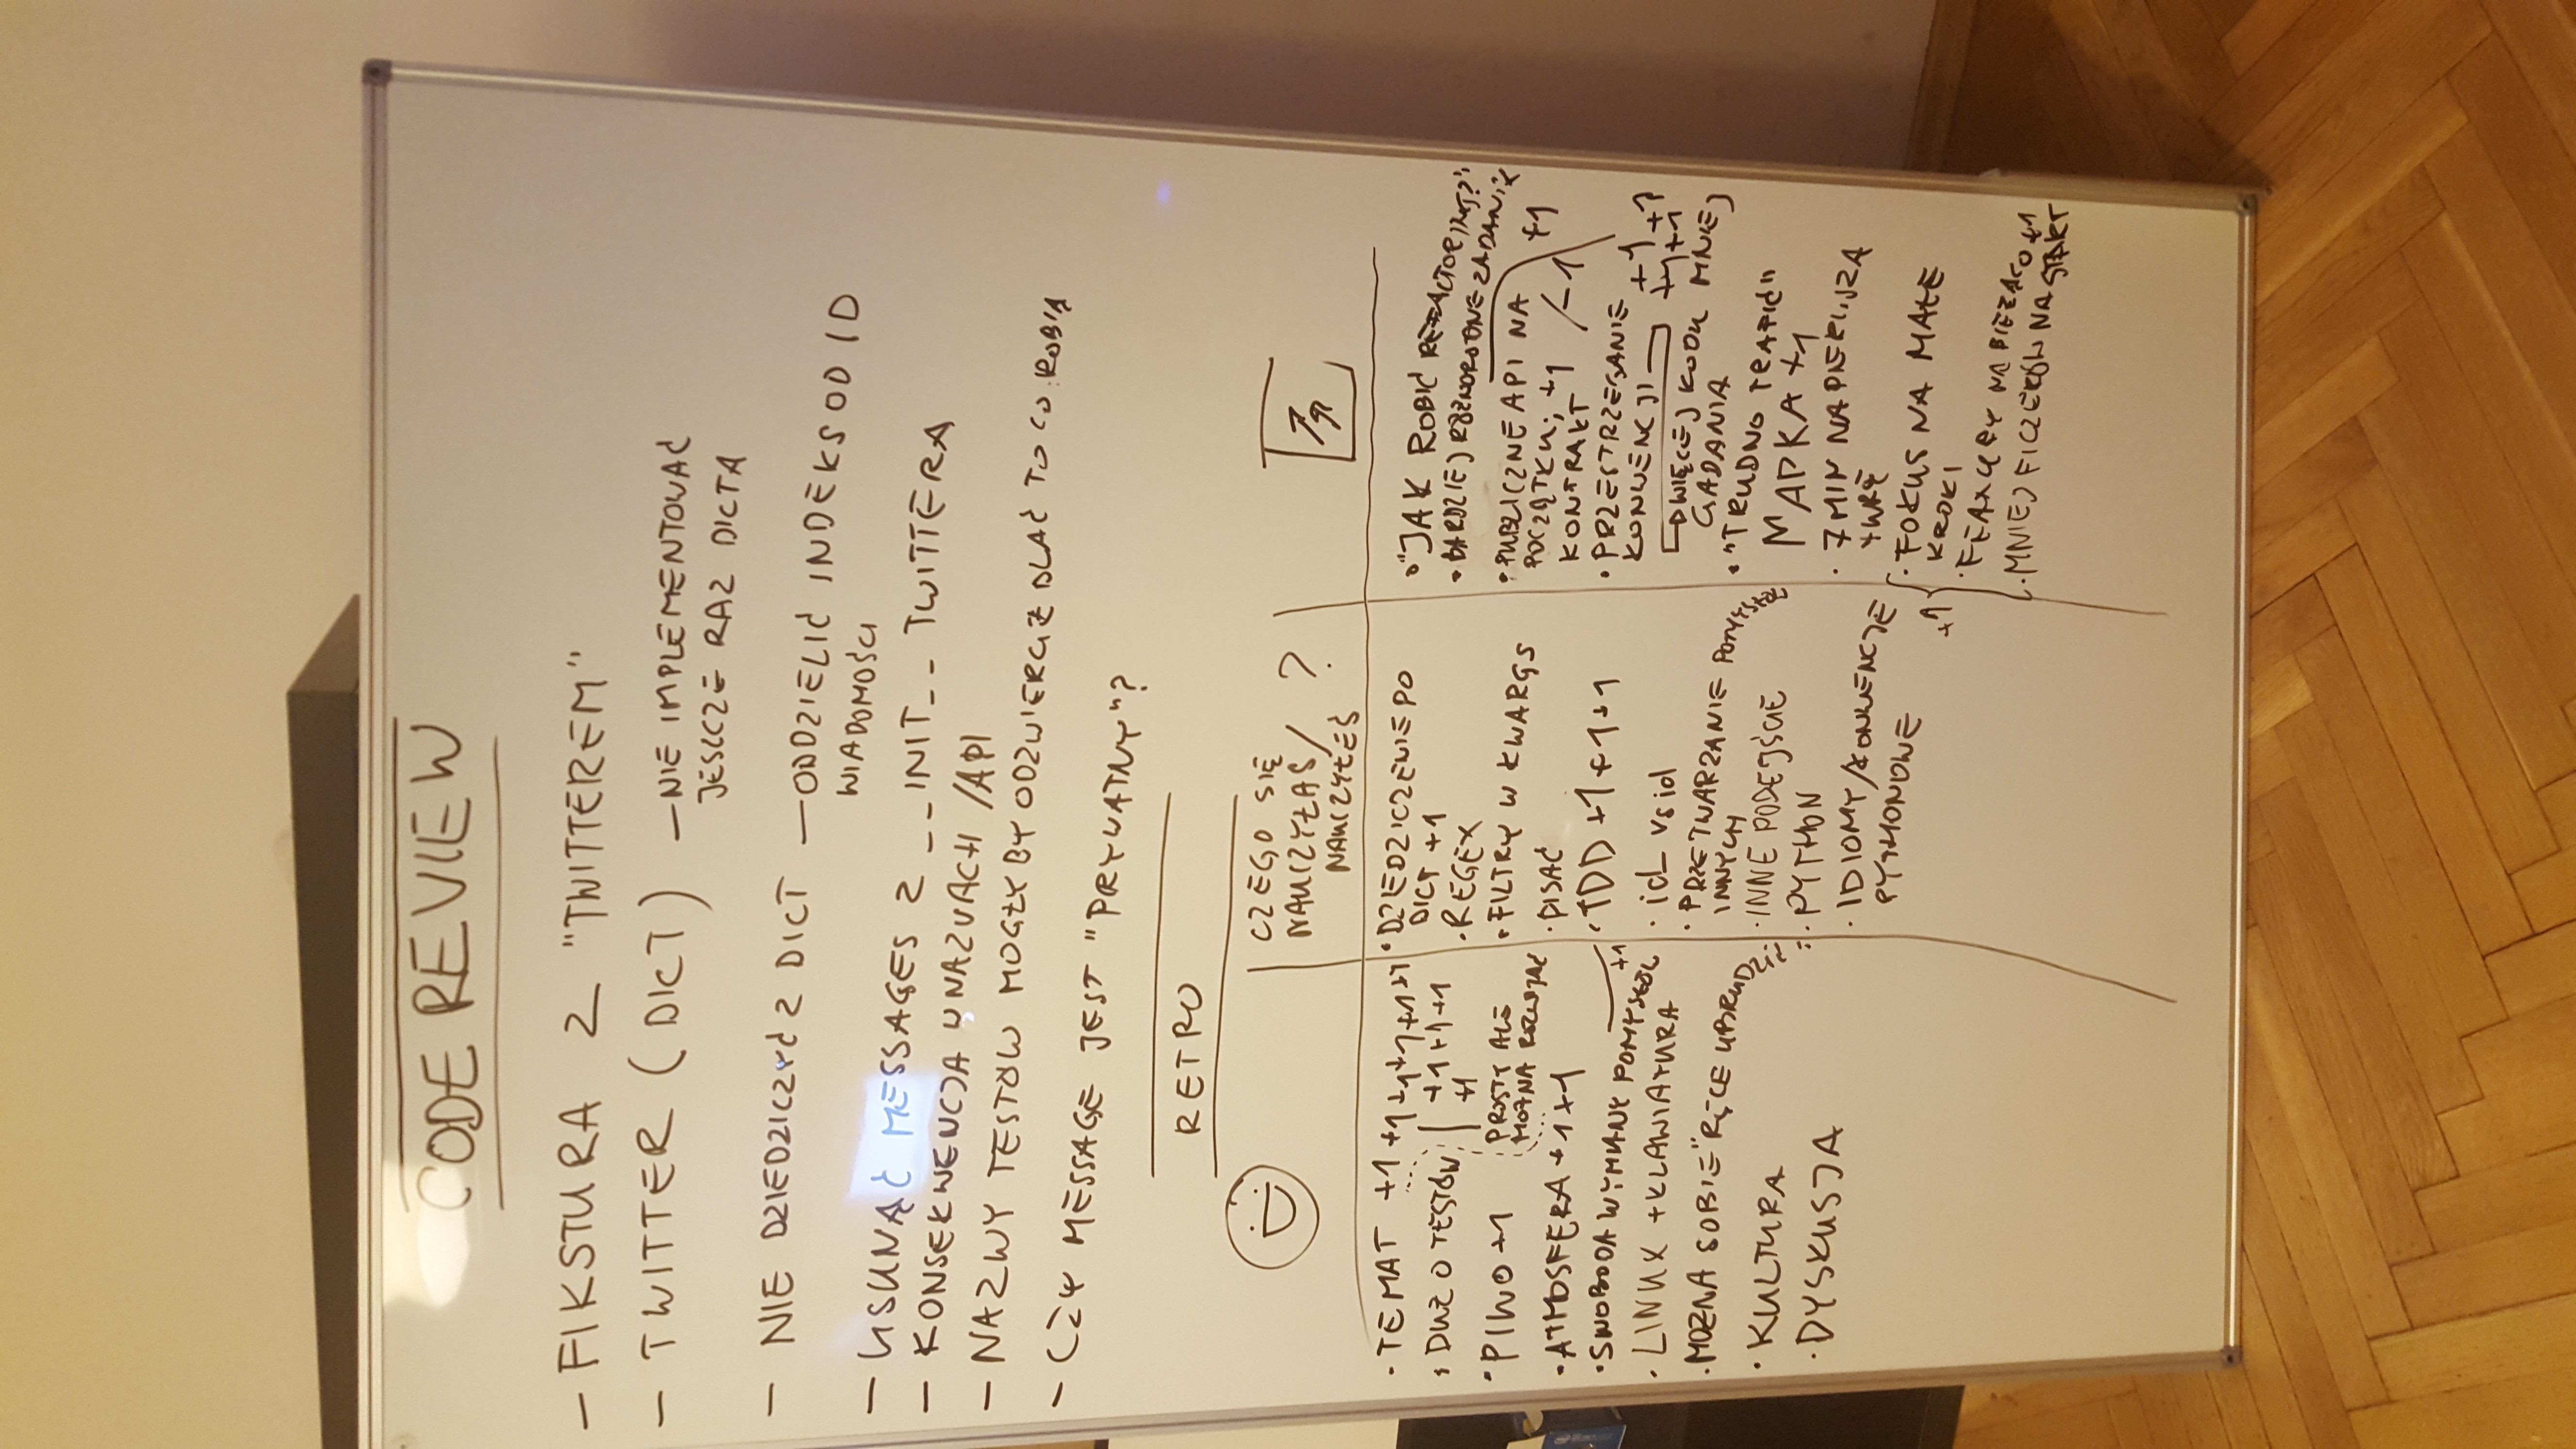 CODE REVIEW
— FIKSTURA Z "TWITTEREM"
— TWITTER (DICT) — NIE IMPLEMENTOWAĆ
JESZCZE RAZ DICTA
— NIE DZIEDZICZYĆ Z DICT — ODDZIELIĆ INDEKS OD ID
WIADOMOŚCI
— USUNĄĆ MESSAGES Z __INIT__ TWITTERA
— KONSEKWENCJA W NAZWACH /API
— NAZWY TESTÓW MOGŁY BY ODZWIERCIEDLAĆ TO CO ROBIĄ
— CZY MESSAGE JEST "PRYWATNY"?
RETRO
· TEMAT +1 +1 +1 +1 +1 +1
· DUŻO TESTÓW | +1 +1 +1
+1
· PIWO +1
PROSTY ALE
MOŻNA ROZWIJAĆ
· ATMOSFERA +1 +1
· SWOBODA WYMIANY POMYSŁÓW +1
· LINUX + KLAWIATURA
· MOŻNA SOBIE "RĘCE UBRUDZIĆ"
· KULTURA
· DYSKUSJA
CZEGO SIĘ
NAUCZYŁAŚ/ ?
NAUCZYŁEŚ
· DZIEDZICZENIE PO
DICT +1
· REGEX
· FILTRY W KWARGS
· PISAĆ
· TDD +1 +1 +1
· id_ vs id
· PRZETWARZANIE POMYSŁÓW
INNYCH
· INNE PODEJŚCIE
· PYTHON
· IDIOMY/KONWENCJE
PYTHONOWE
· "JAK ROBIĆ REFACTORING?"
· BARDZIEJ RÓŻNORODNE ZADANIA
+1
· PUBLICZNE API NA
POCZĄTKU; +1 /-1
KONTRAKT
· PRZESTRZEGANIE
KONWENCJI +1 +1
+1 +1
WIĘCEJ KODU MNIEJ
GADANIA
· "TRUDNO TRAFIĆ"
MAPKA +1
· 7 MIN NA PIERWSZĄ
TURĘ
+1
· FOKUS NA MAŁE
KROKI
· FEATURY NA BIEŻĄCO +1
· MNIEJ FICZERÓW NA START